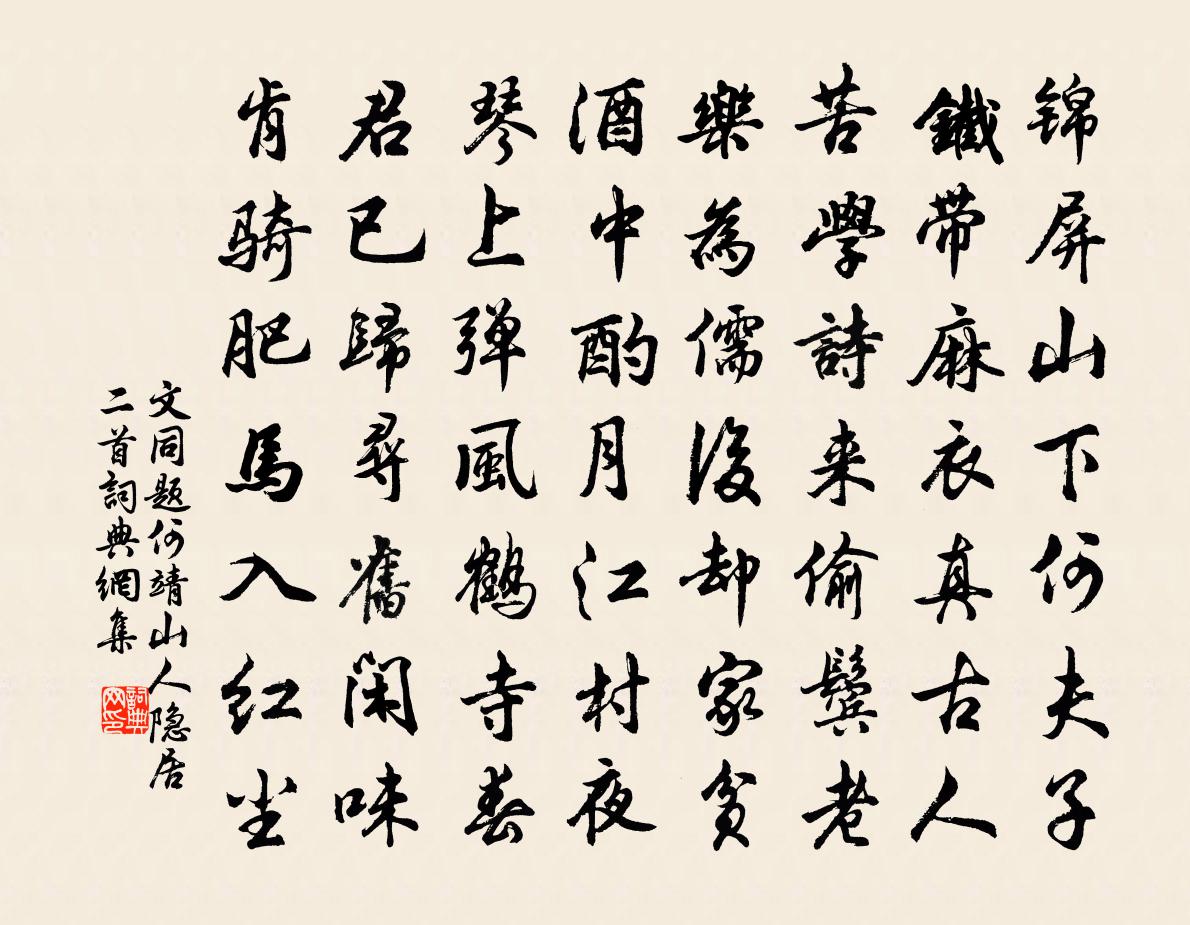 锦屏山下何夫子
鐵带麻衣真古人
苦學詩来偷鬓老
樂為儒後却家貧
酒中酌月江村夜
琴上弹風鹤寺春
君已歸尋舊閑味
肯骑肥馬入红尘
文同题何靖山人隐居
二首詞典網集
詞典
网印